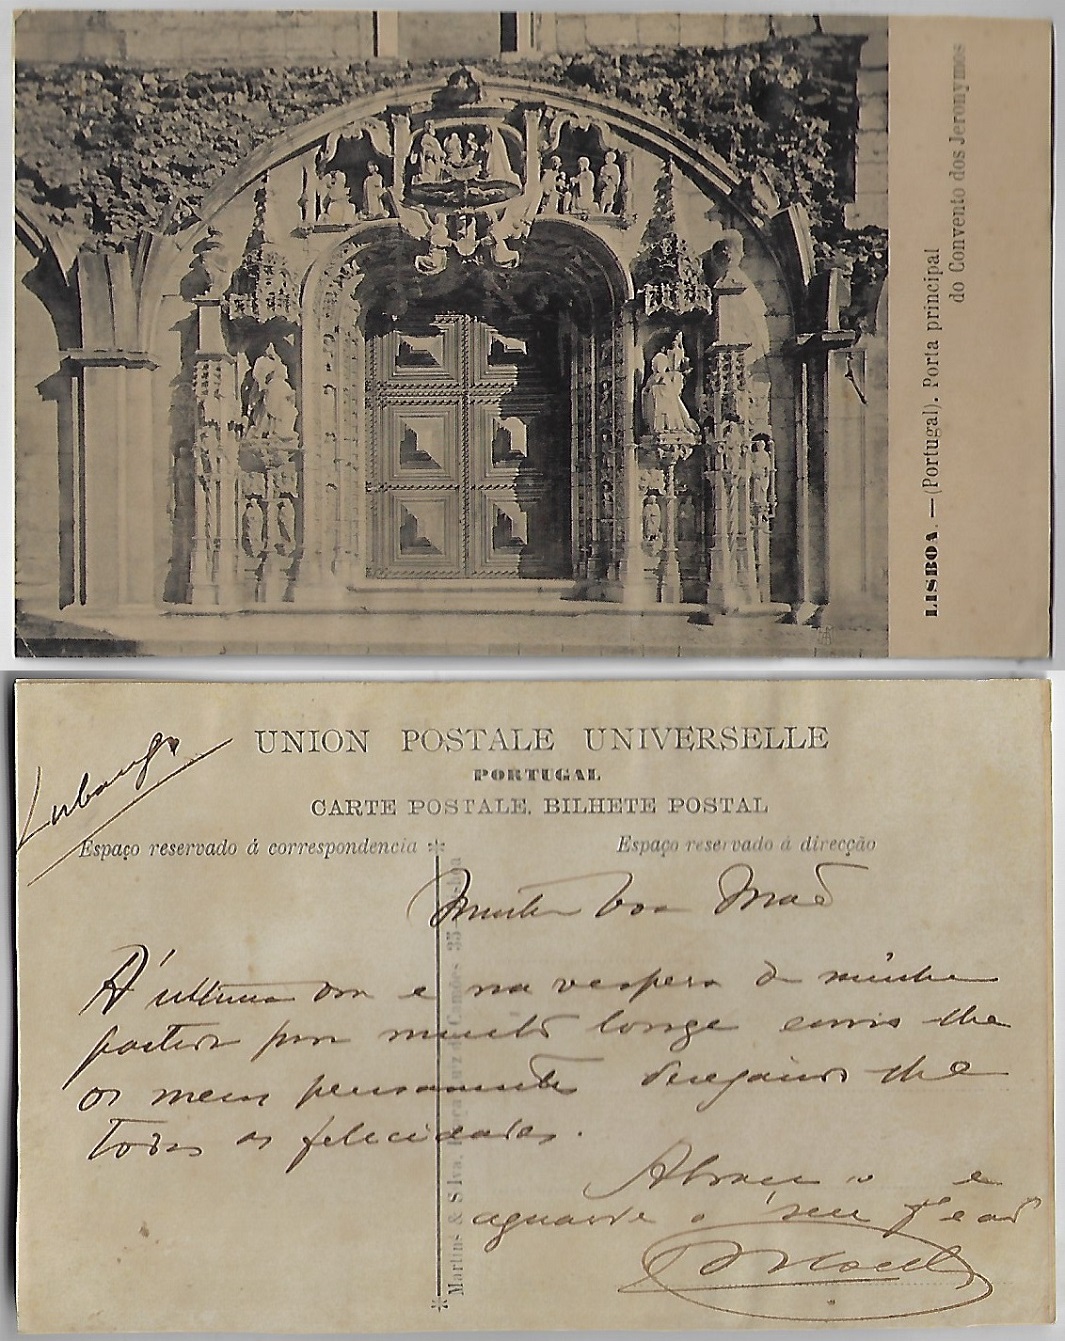 LISBOA. — (Portugal). Porta principal
do Convento dos Jeronymos
Lubango
UNION POSTALE UNIVERSELLE
PORTUGAL
CARTE POSTALE. BILHETE POSTAL
Espaço reservado á correspondencia
Espaço reservado á direcção
Martins & Silva, Luiz de Camões 35
Muito boa Mãe
Á ultima ora e na vespera da minha
partida para muito longe envio-lhe
os meus pensamentos desejando-lhe
todas as felicidades.
Abrace o e
aguarde o seu